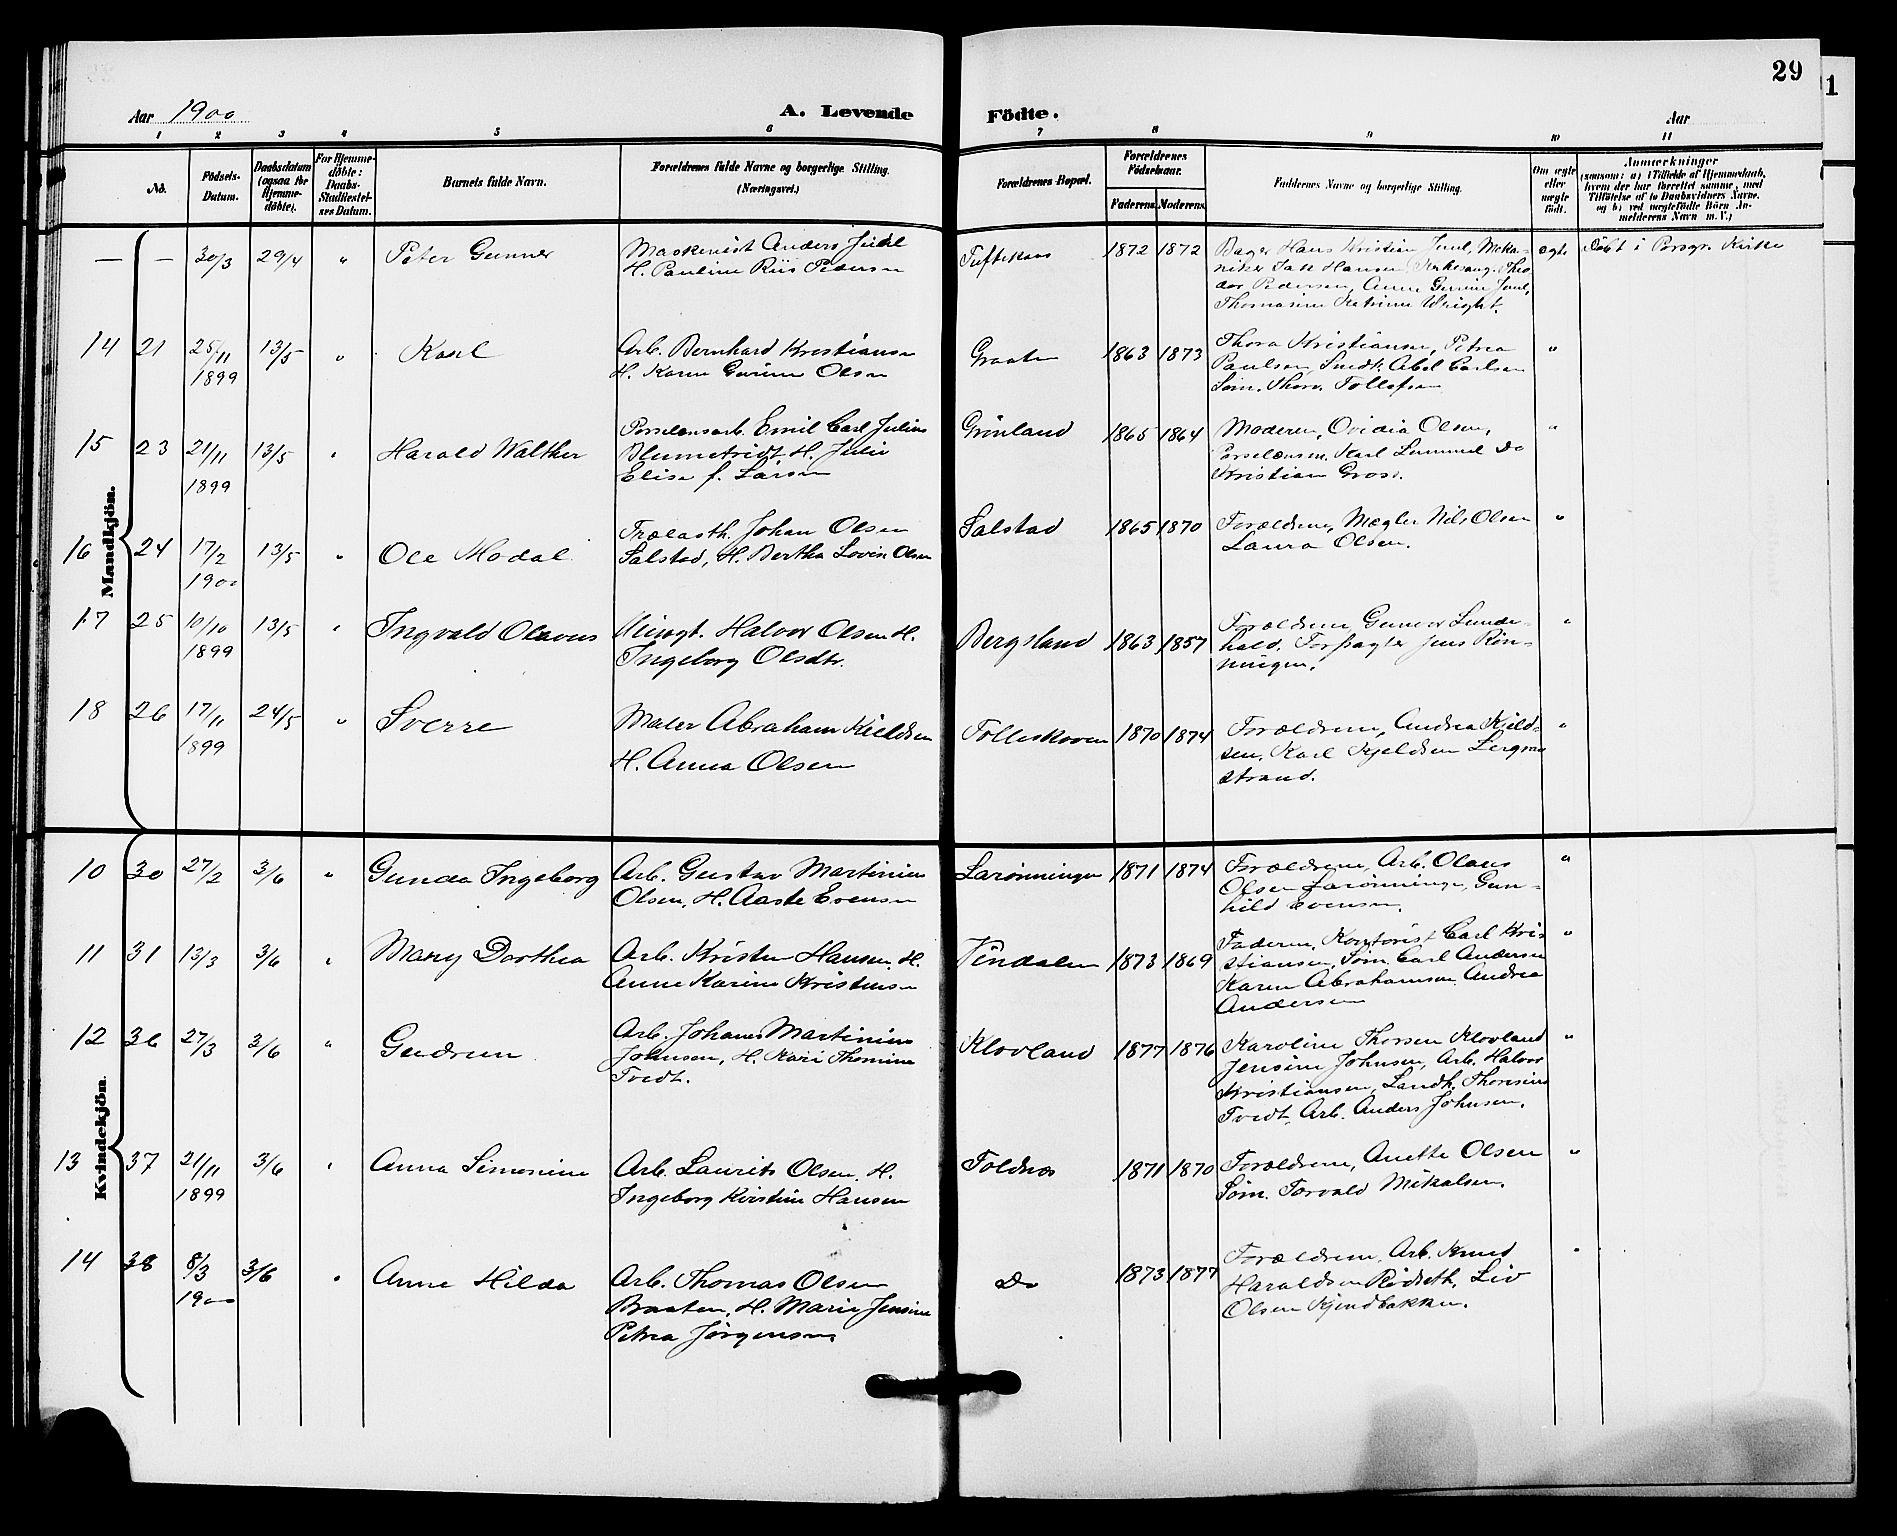 29
1
Aar 1900 A. Levende Födte. Aar
1 2 3 4 5 6 7 8 9 10 11
No.
Födsels-Datum.
Daabsdatum (ogsaa for Hjemme-döbte).
For Hjemme-döbte: Daabs-Stadfæstel-ses Datum.
Barnets fulde Navn.
Forældrenes fulde Navne og borgerlige Stilling. (Næringsvei.)
Forældrenes Bopæl.
Forældrenes Födselsaar.
Faderens. Moderens.
Faddernes Navne og borgerlige Stilling.
Om ægte eller uægte født.
Anmærkninger
(saasom: a) i Tilfælde af Hjemmedaab,
hvem der har forrettet samme, med
Tilföielse af to Daabsvidners Navne,
og b) ved uægtefödte Börn An-
melderens Navn m. V.)
Mandkjön.
— — 30/3 29/4 " Peter Gunner
Maskinist Anders Juul
H. Pauline Riis Pedersen
Tuftekaas 1872 1872
Bager Hans Kristian Juul, Meka-
niker Hansen, Kirkesang. Theo
dor Pedersen, Anne Juul,
Thomasine Katrine Wright.
ægte Døbt i Porsgr. Kirke
14 21 25/11 1899 13/5 " Karl
Arb. Bernhard Kristiansen
H. Karen Gurine Olsen
Graaten 1863 1873
Thora Kristiansen, Petrea
Paulsen, Smedk. Abel Carlsen
Søm. Thorv. Tollefsen
"
15 23 21/11 1899 13/5 " Harald Walther
Porselænsarb. Emil Carl Julius
Blumetridt H. Julie
Elise f. Larsen
Grønland 1865 1864
Moderen, Ovidia Olsen,
Porselænsm. Karl Do
Kristian Gross.
"
16 24 17/2 1900 13/5 " Ole Modal
Trælasth. Johan Olsen
Salstad, H. Bertha Lovise Olsen
Salstad 1865 1870
Forældrene, Mægler Nils Olsen
Laura Olsen.
"
17 25 10/10 1899 13/5 " Ingvald Olavus
Halvor Olsen H.
Ingeborg Olsdtr.
Bergsland 1863 1857
Forældrene Gunvor Lunde-
hald. Forpagter Jens Røn-
ningen.
"
18 26 17/11 1899 24/5 " Sverre
Maler Abraham Kjeldsen
H. Anna Olsen
Folleskoven 1870 1874
Forældrene, Andrea Kjeld-
sen, Karl Kjeldsen
strand.
"
Kvindekjön.
10 30 27/2 3/6 " Gunda Ingeborg
Arb. Gustav Martinius
Olsen, H. Aaste Evensen
Larønningen 1871 1874
Forældrene, Arb. Olaus
Olsen Larønningen, Gun-
hild Evensen.
"
11 31 13/3 3/6 " Mary Dorthea
Arb. Kristen Hansen, H.
Anne Karine Kristensen
Findalen 1873 1869
Faderen, Kontorist Carl Kris
tiansen, Søm. Carl Andersen
Karen Abrahamsen, Andrea
Andersen
"
12 36 27/3 3/6 " Gudrun
Arb. Johannes Martinius
Johnsen, H. Kari Thomine
Tvedt.
Klovland 1877 1876
Karoline Thorsen Klovland
Jensine Johnsen, Arb. Halvor
Kristiansen, Landh. Thoresius
Tvedt, Arb. Anders Johnsen.
"
13 37 21/11 1899 3/6 " Anna Simonine
Arb. Laurits Olsen, H.
Ingeborg Kirstine Hansen
Foldnes 1871 1870
Forældrene, Anette Olsen
Søm. Torvald Mikalsen.
"
14 38 8/3 1900 3/6 " Anne Hilda
Arb. Thomas Olsen
Braaten, H. Marie Jensine
Petrea Jørgensen
Do 1873 1877
Forældrene, Arb. Knud
Haraldsen Rødseth, Liv
Olsen Kjendbakken.
"